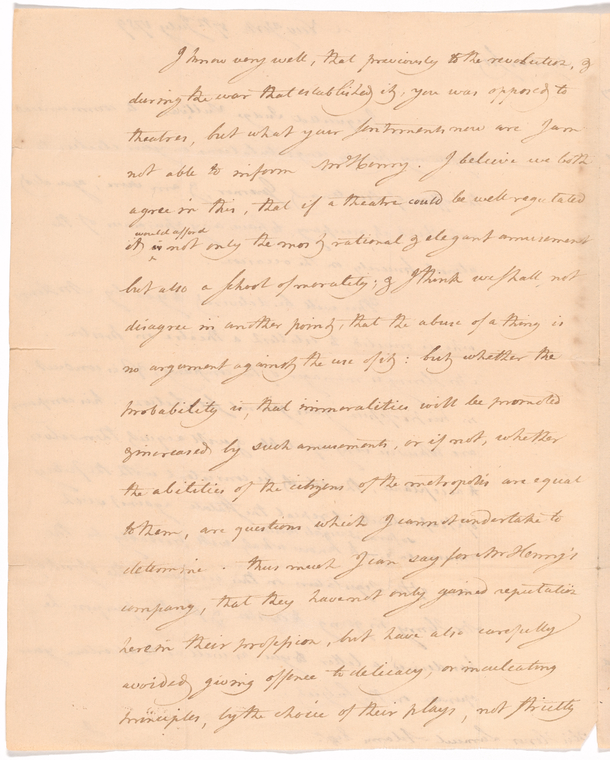 I know very well, that previously to the revolution, &
during the war that established it, you was opposed to
theatres, but what your sentiments now are I am
not able to inform Mr Henry. I believe we both
agree in this, that if a theatre could be well regulated
would afford
it is not only the most rational & elegant amusement
but also a school of morality; & I think we shall not
disagree in another point, that the abuse of a thing is
no argument against the use of it: but whether the
probability is, that immoralities will be promoted
& increased by such amusements, or if not, whether
the abilities of the citizens of the metropolis are equal
to them, are questions which I cannot undertake to
determine. Thus much I can say for Mr Henry's
company, that they have not only gained reputation
here in their profession, but have also carefully
avoided giving offence to delicacy, or inculcating
principles, by the choice of their plays, not strictly